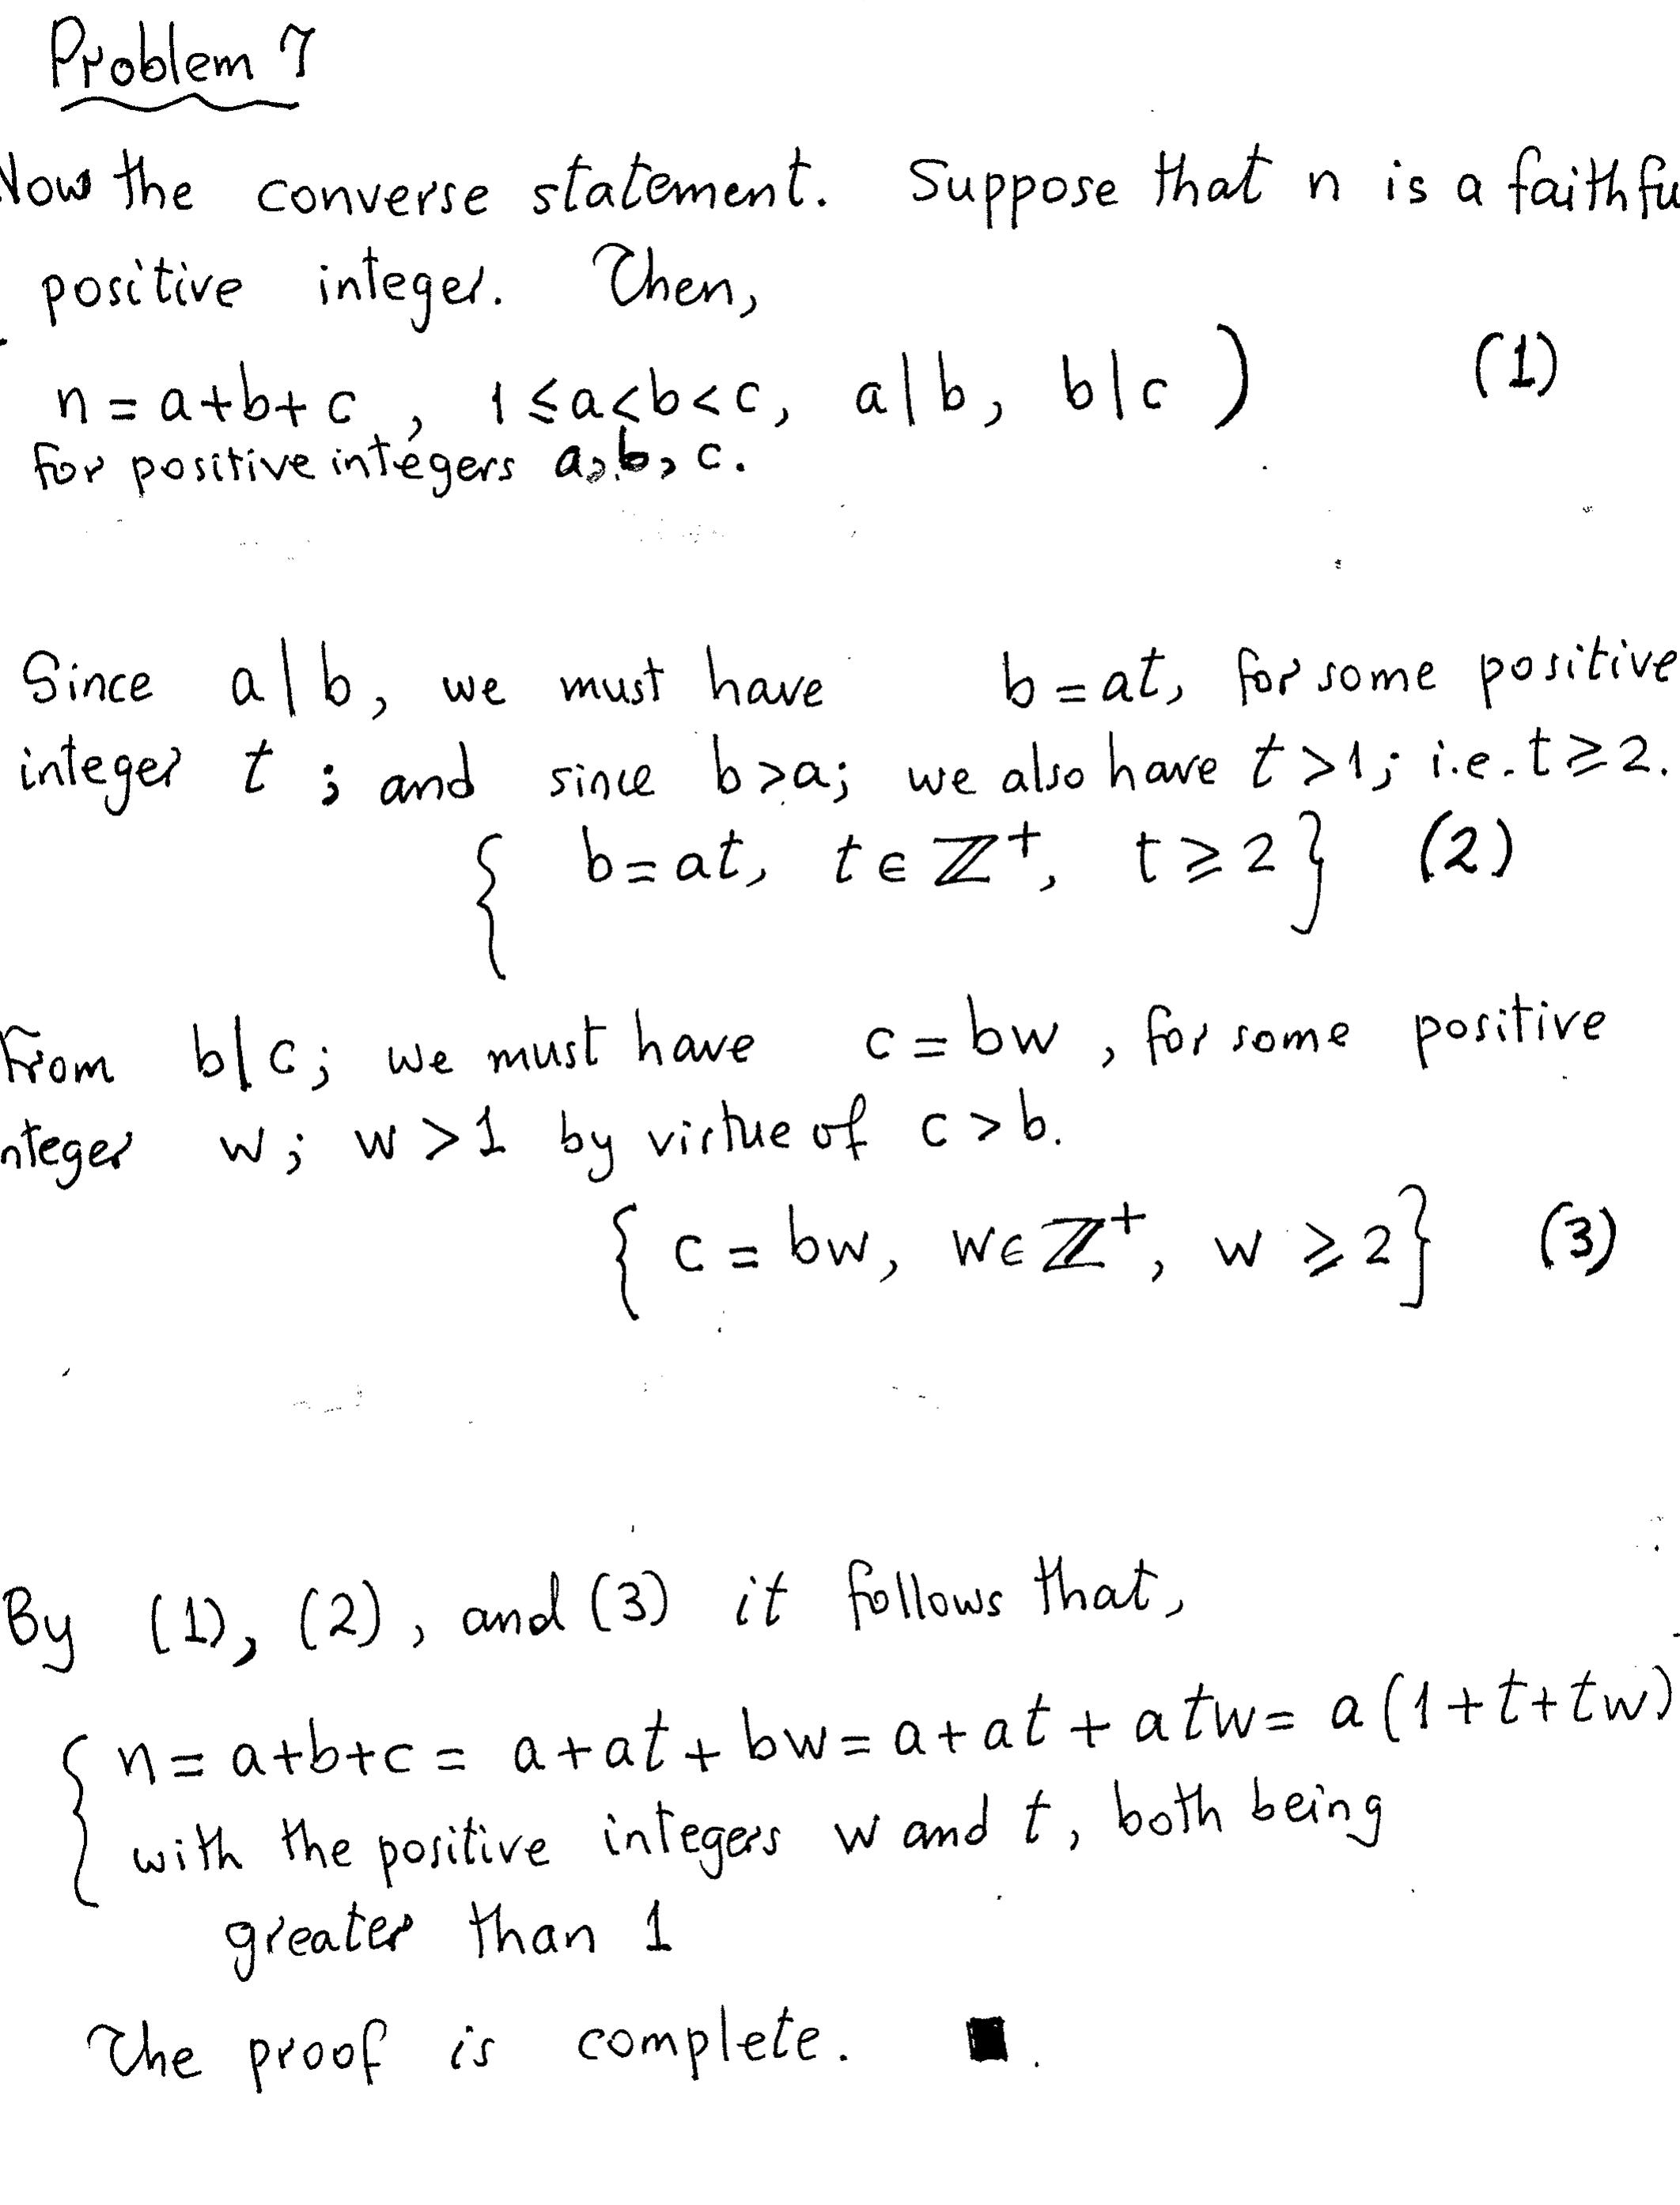 Problem 7
Now the converse statement. Suppose that n is a faithfu
positive integer. Then,
n = a+b+c, 1 ≤ a < b < c, a|b, b|c ) (1)
for positive integers a, b, c.
Since a|b, we must have b = at, for some positive
integer t; and since b > a; we also have t > 1; i.e. t ≥ 2.
{ b = at, t ∈ ℤ⁺, t ≥ 2 } (2)
From b|c; we must have c = bw, for some positive
nteger w; w > 1 by virtue of c > b.
{ c = bw, w ∈ ℤ⁺, w ≥ 2 } (3)
By (1), (2), and (3) it follows that,
{ n = a+b+c = a+at+bw = a+at+atw = a(1+t+tw)
with the positive integers w and t, both being
greater than 1
The proof is complete. ■.